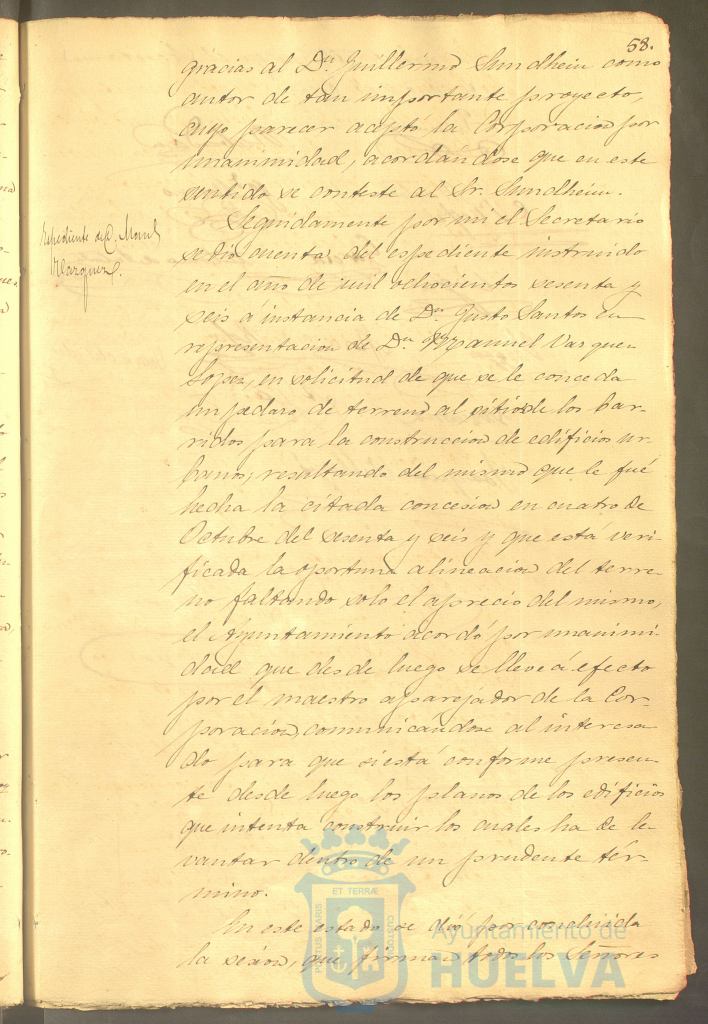 58.
gracias al Dn. Guillermo Sundheim como
autor de tan importante proyecto,
cuyo parecer aceptó la Corporacion por
unanimidad, acordándose que en este
sentido se conteste al Sr. Sundheim.
Espediente de D. Manl.
Vazquez.
Seguidamente por mi el Secretario
se dió cuenta del espediente instruido
en el año de mil ochocientos sesenta y
seis a instancia de Dn. Justo Santos en
representacion de Dn. Manuel Vazquez
Lopez, en solicitud de que se le conceda
un pedazo de terreno al sitio de los bar-
ridos para la construccion de edificios ur-
banos, resultando del mismo que le fué
hecha la citada concesion en cuatro de
Octubre del sesenta y seis y que está veri-
ficada la oportuna alineacion del terre-
no faltando solo el aprecio del mismo,
el Ayuntamiento acordó por unanimi-
dad que desde luego se lleve á efecto
por el maestro aparejador de la Cor-
poracion, comunicandose al interesa
do para que si está conforme presen-
te desde luego los planos de los edificios
que intenta construir los cuales ha de le-
vantar dentro de un prudente tér-
mino.
En este estado se dió por concluida
la sesion, que firman todos los Señores
PORTUS MARIS
ET TERRÆ
CUSTODIA
Ayuntamiento de
HUELVA